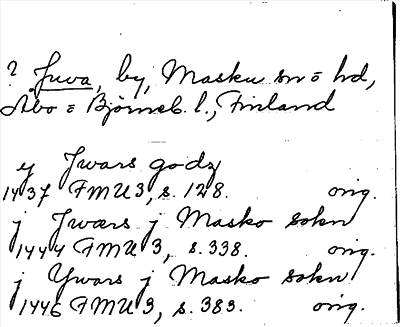 ? Juva, by, Masku sn o hd,
Åbo o Björneb. l., Finland
y Jwars godz
1437 FMU 3, s. 128. orig.
j Jwars j Masko sokn
1444 FMU 3, s. 338. orig.
j Ywars j Masko sokn
1446 FMU 3, s. 383. orig.